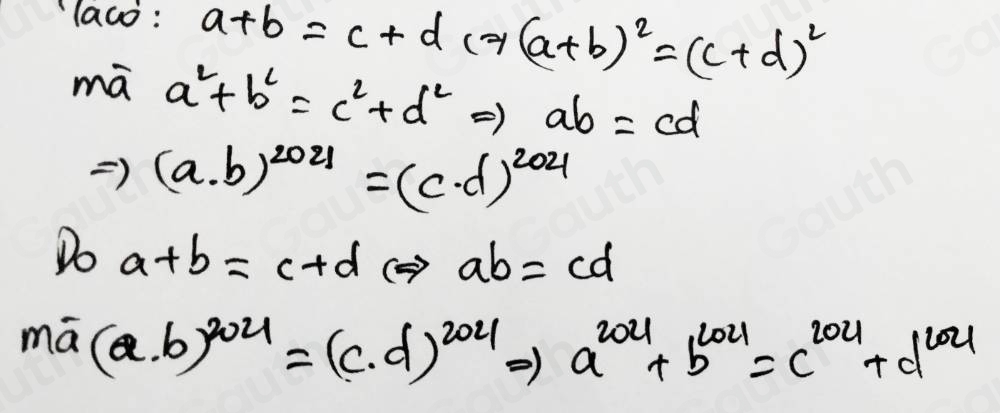 Ta có: a+b = c+d (⇒ (a+b)² = (c+d)²
mà a²+b² = c²+d² ⇒ ab = cd
⇒ (a.b)²⁰²¹ = (c.d)²⁰²¹
Do a+b = c+d ⇔ ab = cd
mà (a.b)²⁰²¹ = (c.d)²⁰²¹ ⇒ a²⁰²¹ + b²⁰²¹ = c²⁰²¹ + d²⁰²¹
Gauth